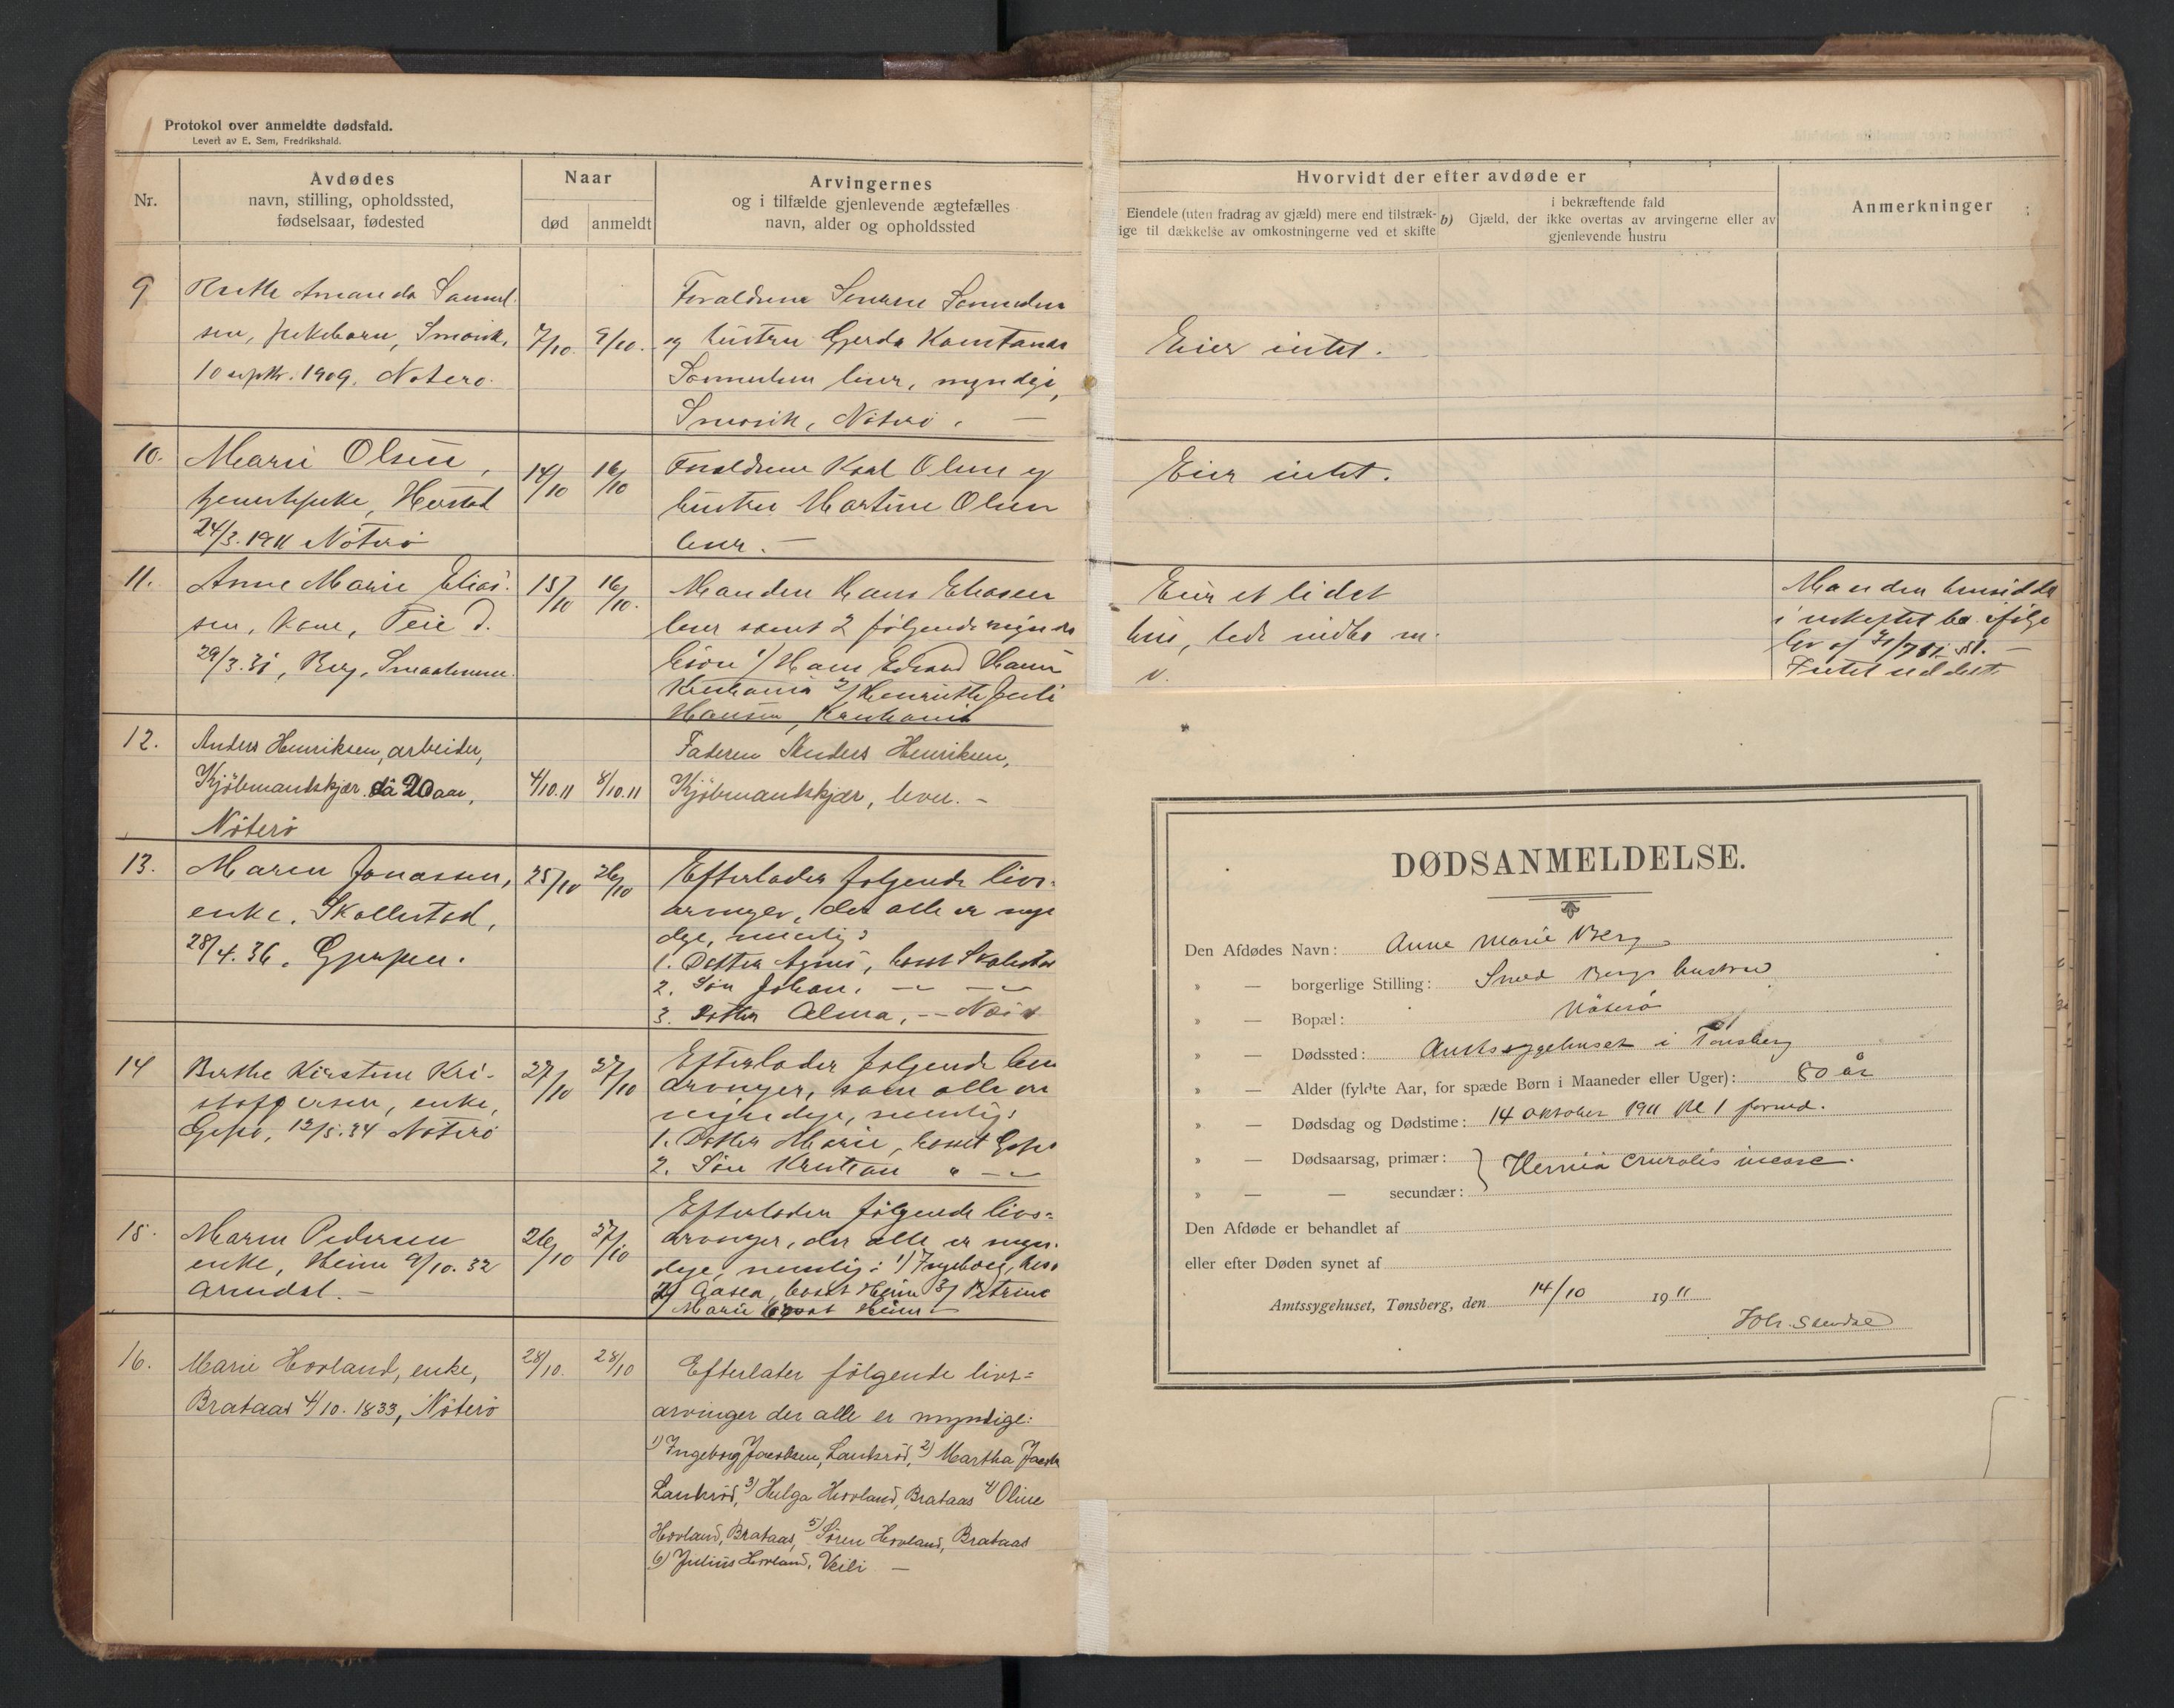 Protokol over anmeldte dødsfald.
Levert av E. Sem, Fredrikshald.
Nr.
Avdødes
navn, stilling, opholdssted,
fødselsaar, fødested
Naar
død anmeldt
Arvingernes
og i tilfælde gjenlevende ægtefælles
navn, alder og opholdssted
9
Amanda Samuel-
sen, Smørvik,
10 septbr. 1909. Nøterø.
7/10. 9/10.
Forældrene Samuelsen
og hustru Gerda Konstanse
Samuelsen lever, myndige,
Smørvik, Nøterø. —
10.
Marie Olsen,
24/3. 1911 Nøterø
14/10 16/10
Forældrene Karl Olsen og
hustru Martine Olsen
lever. —
11.
Anne Marie Elias-
sen, kone, Teie d.
29/3. 31, Berg, Smaalenene.
15/10 16/10.
Manden Hans Eliasen
lever samt 2 følgende myndi
børn 1/ Hans Edvard Hans
Kristiania 2/ Henriette
Hansen, Kristiania
12.
Anders Henriksen, arbeider,
Kjøbmandskjær. 20 aar,
Nøterø
4/10.11 8/10.11
Faderen Anders Henriksen,
Kjøbmandskjær, lever. –
13.
Maren Jonassen,
enke, Skallestad,
28/4. 36. Gjerpen.
25/10 26/10
Efterlader følgende livs-
arvinger, der alle er myn
dige, nemlig:
1. Datter Agnes, bosat Skallestad
2. Søn Johan, — — —
3. Datter Alma, —
14
Berthe Kirstine Kri-
stoffersen, enke,
Gipø, 12/5. 34 Nøterø
27/10 27/10
Efterlader følgende livs
arvinger, som alle er
myndige, nemlig:
1. Datter Marie, bosat Gipø
2. Søn Kristian " —
15.
Maren Pedersen
enke, Heim 9/10. 32
Arendal. —
26/10 27/10
Efterlader følgende livs=
arvinger, der alle er myn-
dige, nemlig: 1) Ingeborg, bosa
2) Aasea, bosat Heim 3) Petrine
4) Marie bosat Heim —
16.
Marie Hovland, enke,
Brataas 4/10. 1833, Nøterø
28/10. 28/10
Efterlater følgende livs=
arvinger der alle er myndige:
1) Ingeborg Jacobsen, Lankrød, 2) Martha Jacobs
Lankrød, 3) Helga Hovland, Brataas 4) Oline
Hovland, Brataas, 5) Søren Hovland, Brataas
6) Julius Hovland, Veili —
Hvorvidt der efter avdøde er
Eiendele (uten fradrag av gjæld) mere end tilstræk-
ige til dækkelse av omkostningerne ved et skifte
b)
i bekræftende fald
Gjæld, der ikke overtas av arvingerne eller av
gjenlevende hustru
Anmerkninger
Eier intet.
Eier intet.
Eier et lidet
hus, lidt indbo m.
v.
Manden hensidder
i uskiftet bo ifølge
lov af 31/7 51 §1. —
Intet uddelt
DØDSANMELDELSE.
Den Afdødes Navn: Anne Marie Berg
» — borgerlige Stilling: Smed Bergs hustru
» — Bopæl: Nøterø
» — Dødssted: Amtssygehuset i Tønsberg
» — Alder (fyldte Aar, for spæde Børn i Maaneder eller Uger): 80 år
» — Dødsdag og Dødstime: 14 oktober 1911 kl 1 formd.
» — Dødsaarsag, primær: } Hernia cruralis incarc.
» — — secundær:
Den Afdøde er behandlet af
eller efter Døden synet af
Amtssygehuset, Tønsberg, den 14/10 1911